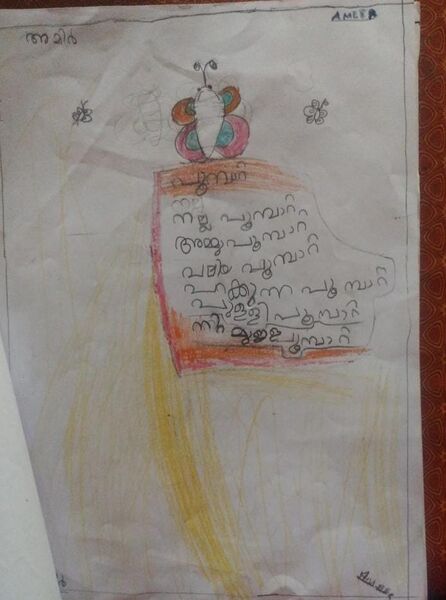 അമീർ
AMEER
പൂമ്പാറ്റ
നല്ല പൂമ്പാറ്റ
അമ്മുപൂമ്പാറ്റ
പൂമ്പാറ്റ
പറക്കുന്ന പൂമ്പാറ്റ
പുള്ളി പൂമ്പാറ്റ
നിറമുള്ള പൂമ്പാറ്റ